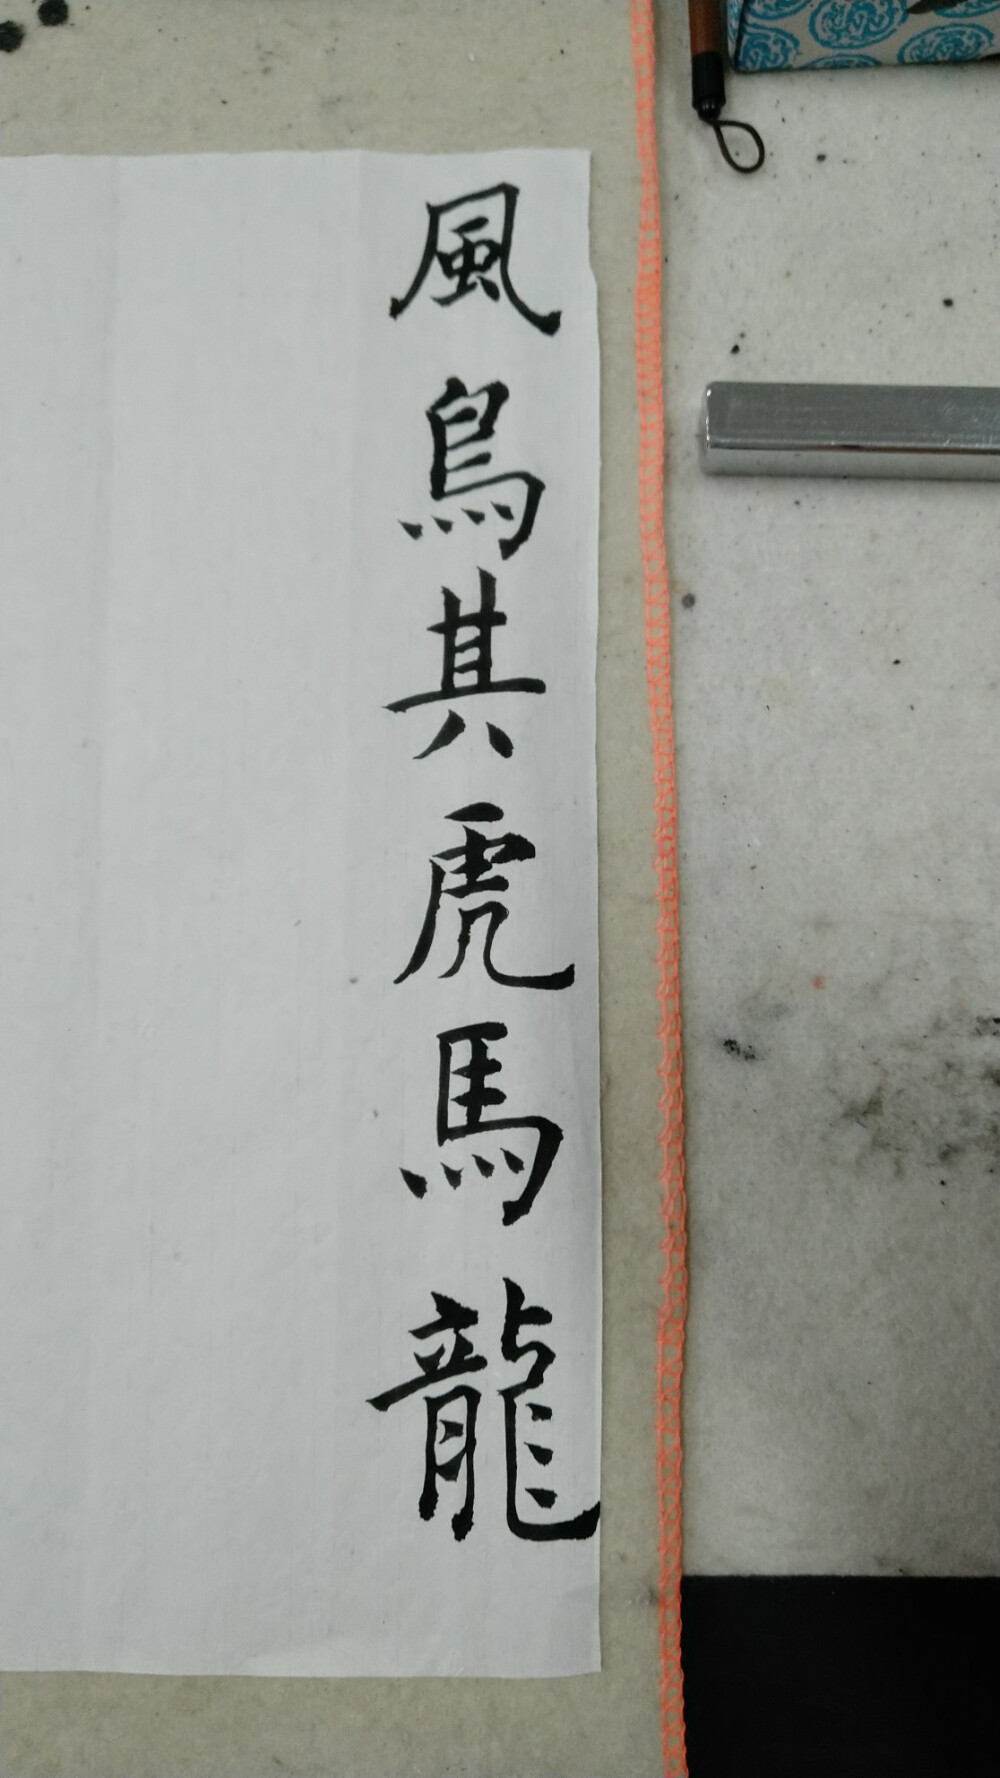 風鳥其虎馬龍